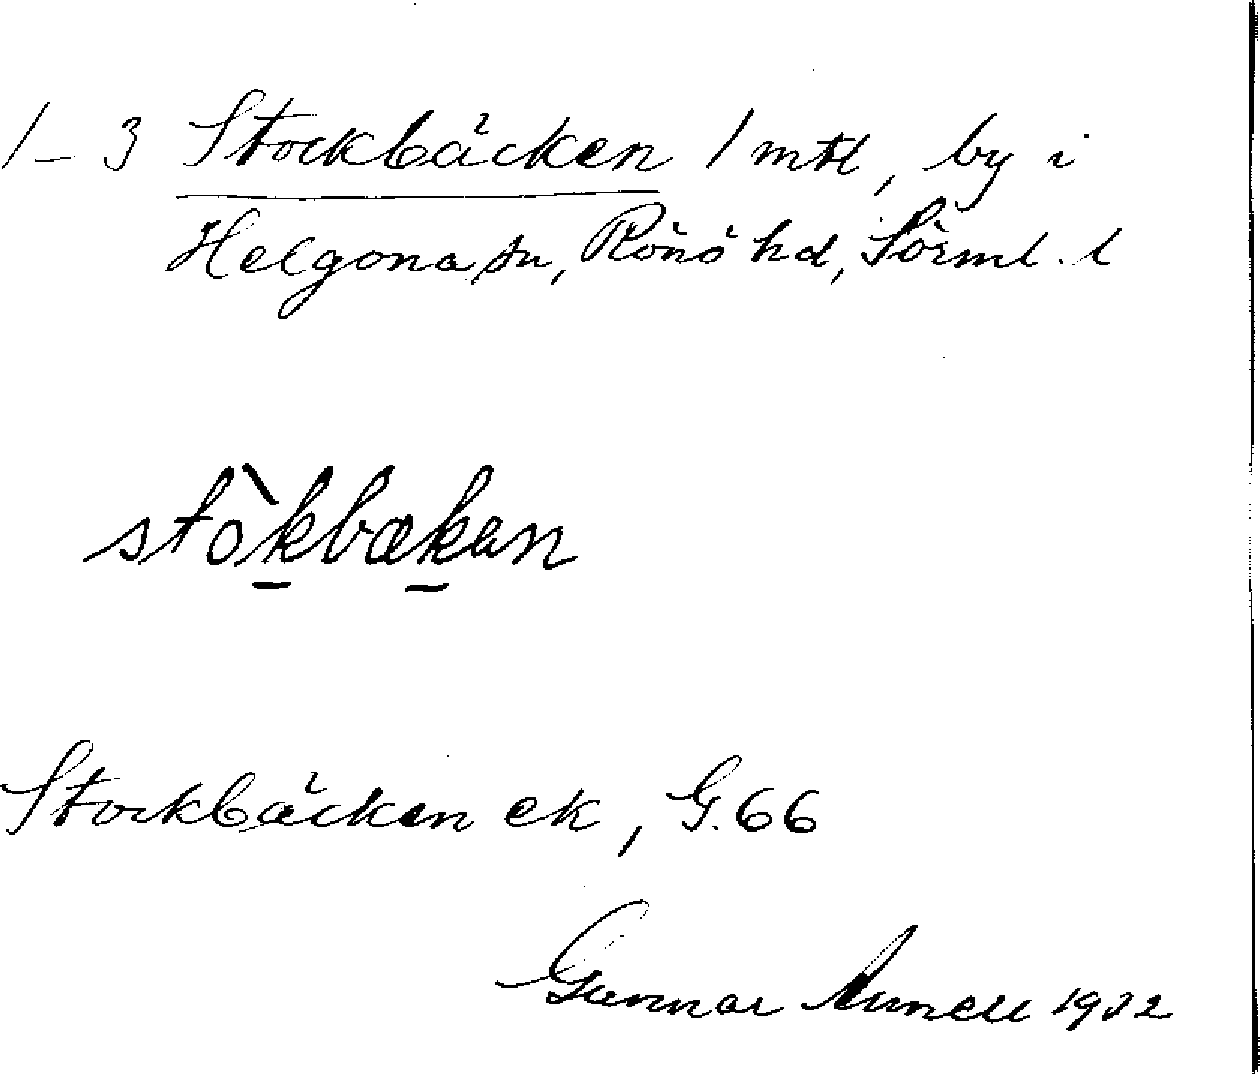 1-3 Stockbäcken 1 mtl, by i
Helgona sn, Rönö hd, Sörml. l
stòkbækan
Stockbäcken ek, G.66
Gunnar 1932